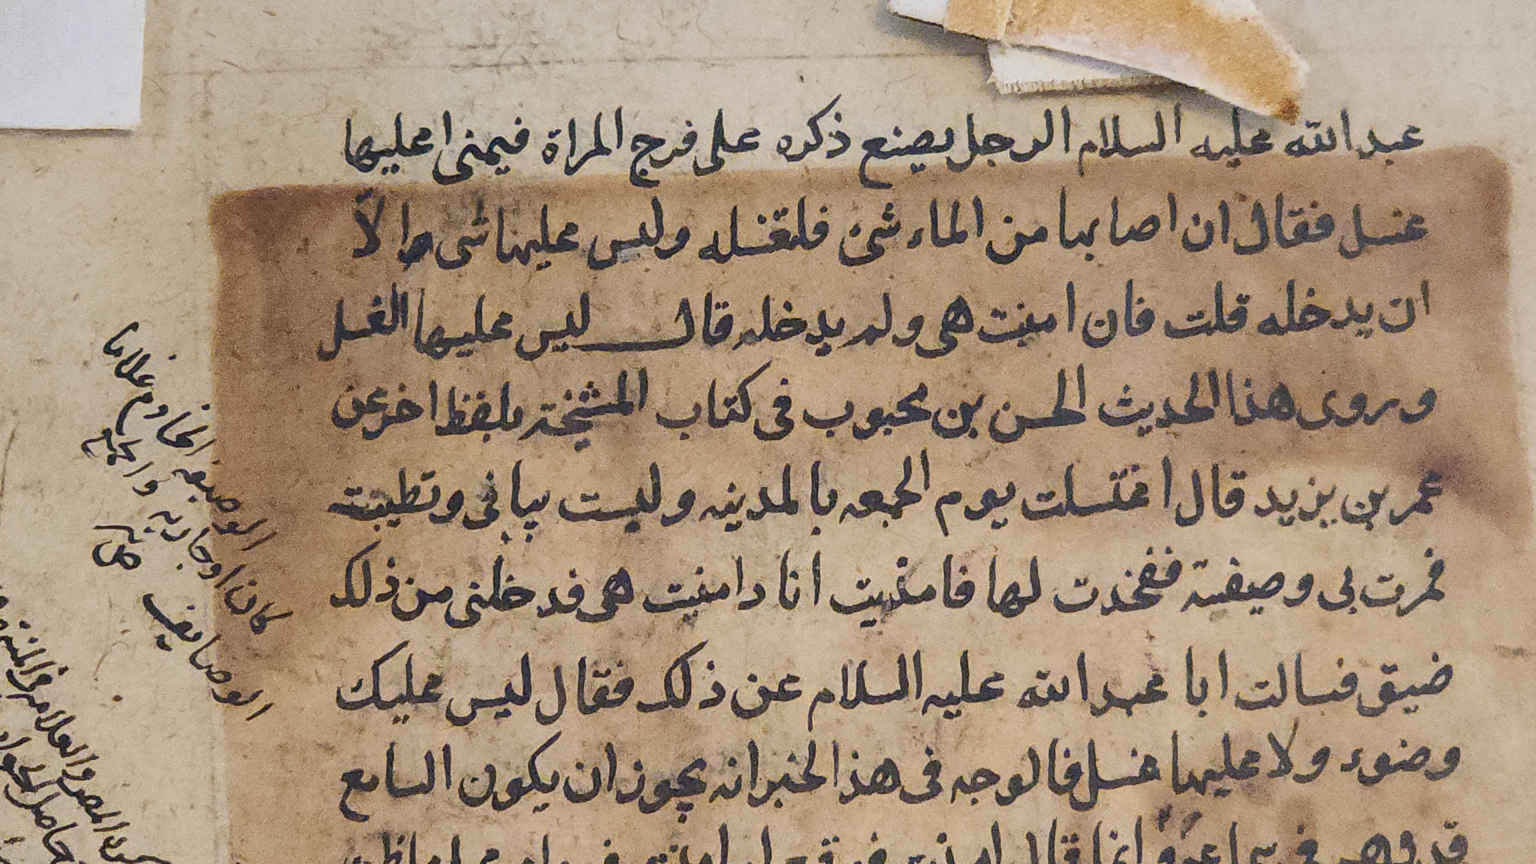 عبد الله عليه السلام الرجل يصنع ذكره على فرج المراة فيمنى اعليها
غسل فقال ان اصابها من الماء شئ فلتغسله وليس عليها شى الّا
ان يدخله قلت فان امنت هى ولم يدخله قال ليس عليها الغسل
وروى هذا الحديث الحسن بن محبوب فى كتاب المشيخة بلفظ اخر عن
عمر بن يزيد قال اغتسلت يوم الجمعه بالمدينه ولبست ثيابى وتطيبت
فمرت بى وصيفة ففخذت لها فامذيت انا وامنت هى فدخلنى من ذلك
ضيق فسالت ابا عبد الله عليه السلام عن ذلك فقال ليس عليك
وضوء ولا عليها غسل فالوجه فى هذا الخبر انه يجوز ان يكون السامع
قد وهم فى سماعه وانما قال
الوصيف الخادم غلاما
كان او جارية والجمع
الوصايف